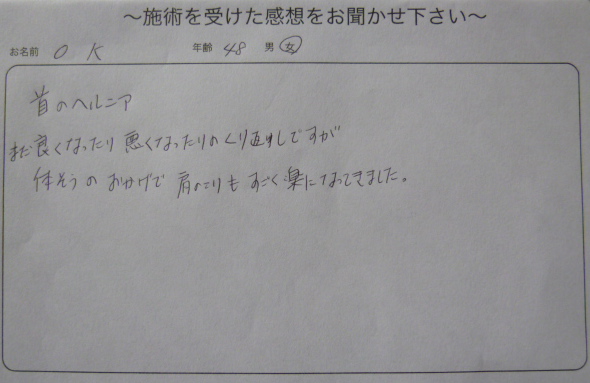 ～施術を受けた感想をお聞かせ下さい～
お名前 O K 年齢 48 男 女
首のヘルニア
まだ良くなったり悪くなったりのくり返しですが
体そうのおかげで肩のこりもすごく楽になってきました。